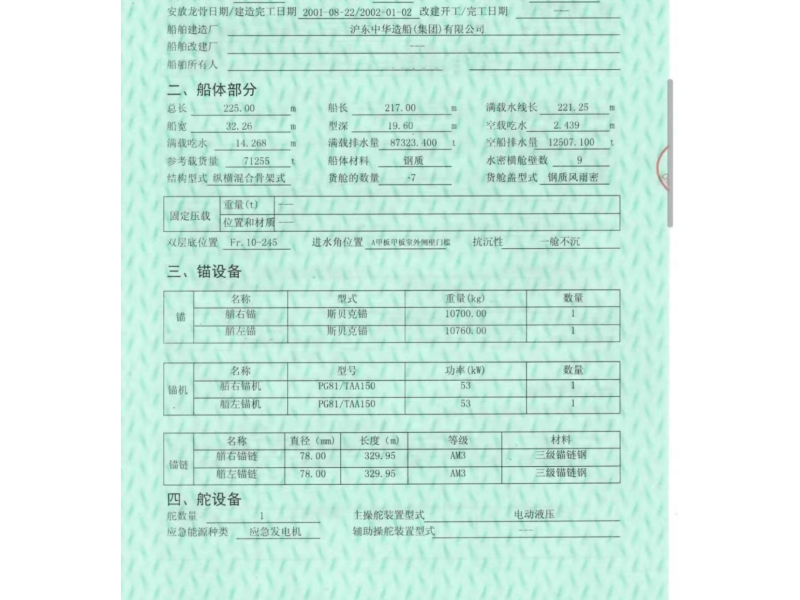 安放龙骨日期/建造完工日期 2001-08-22/2002-01-02 改建开工/完工日期 ---
船舶建造厂 沪东中华造船(集团)有限公司
船舶改建厂 ---
船舶所有人
二、船体部分
总长 225.00 m 船长 217.00 m 满载水线长 221.25 m
船宽 32.26 m 型深 19.60 m 空载吃水 2.439 m
满载吃水 14.268 m 满载排水量 87323.400 t 空船排水量 12507.100 t
参考载货量 71255 t 船体材料 钢质 水密横舱壁数 9
结构型式 纵横混合骨架式 货舱的数量 7 货舱盖型式 钢质风雨密
固定压载 重量(t) ---
位置和材质 ---
双层底位置 Fr.10-245 进水角位置 A甲板甲板室外侧壁门槛 抗沉性 一舱不沉
三、锚设备
锚 名称 型式 重量(kg) 数量
艏右锚 斯贝克锚 10700.00 1
艏左锚 斯贝克锚 10760.00 1
锚机 名称 型号 功率(kW) 数量
艏右锚机 PG81/TAA150 53 1
艏左锚机 PG81/TAA150 53 1
锚链 名称 直径 (mm) 长度 (m) 等级 材料
艏右锚链 78.00 329.95 AM3 三级锚链钢
艏左锚链 78.00 329.95 AM3 三级锚链钢
四、舵设备
舵数量 1 主操舵装置型式 电动液压
应急能源种类 应急发电机 辅助操舵装置型式 ---